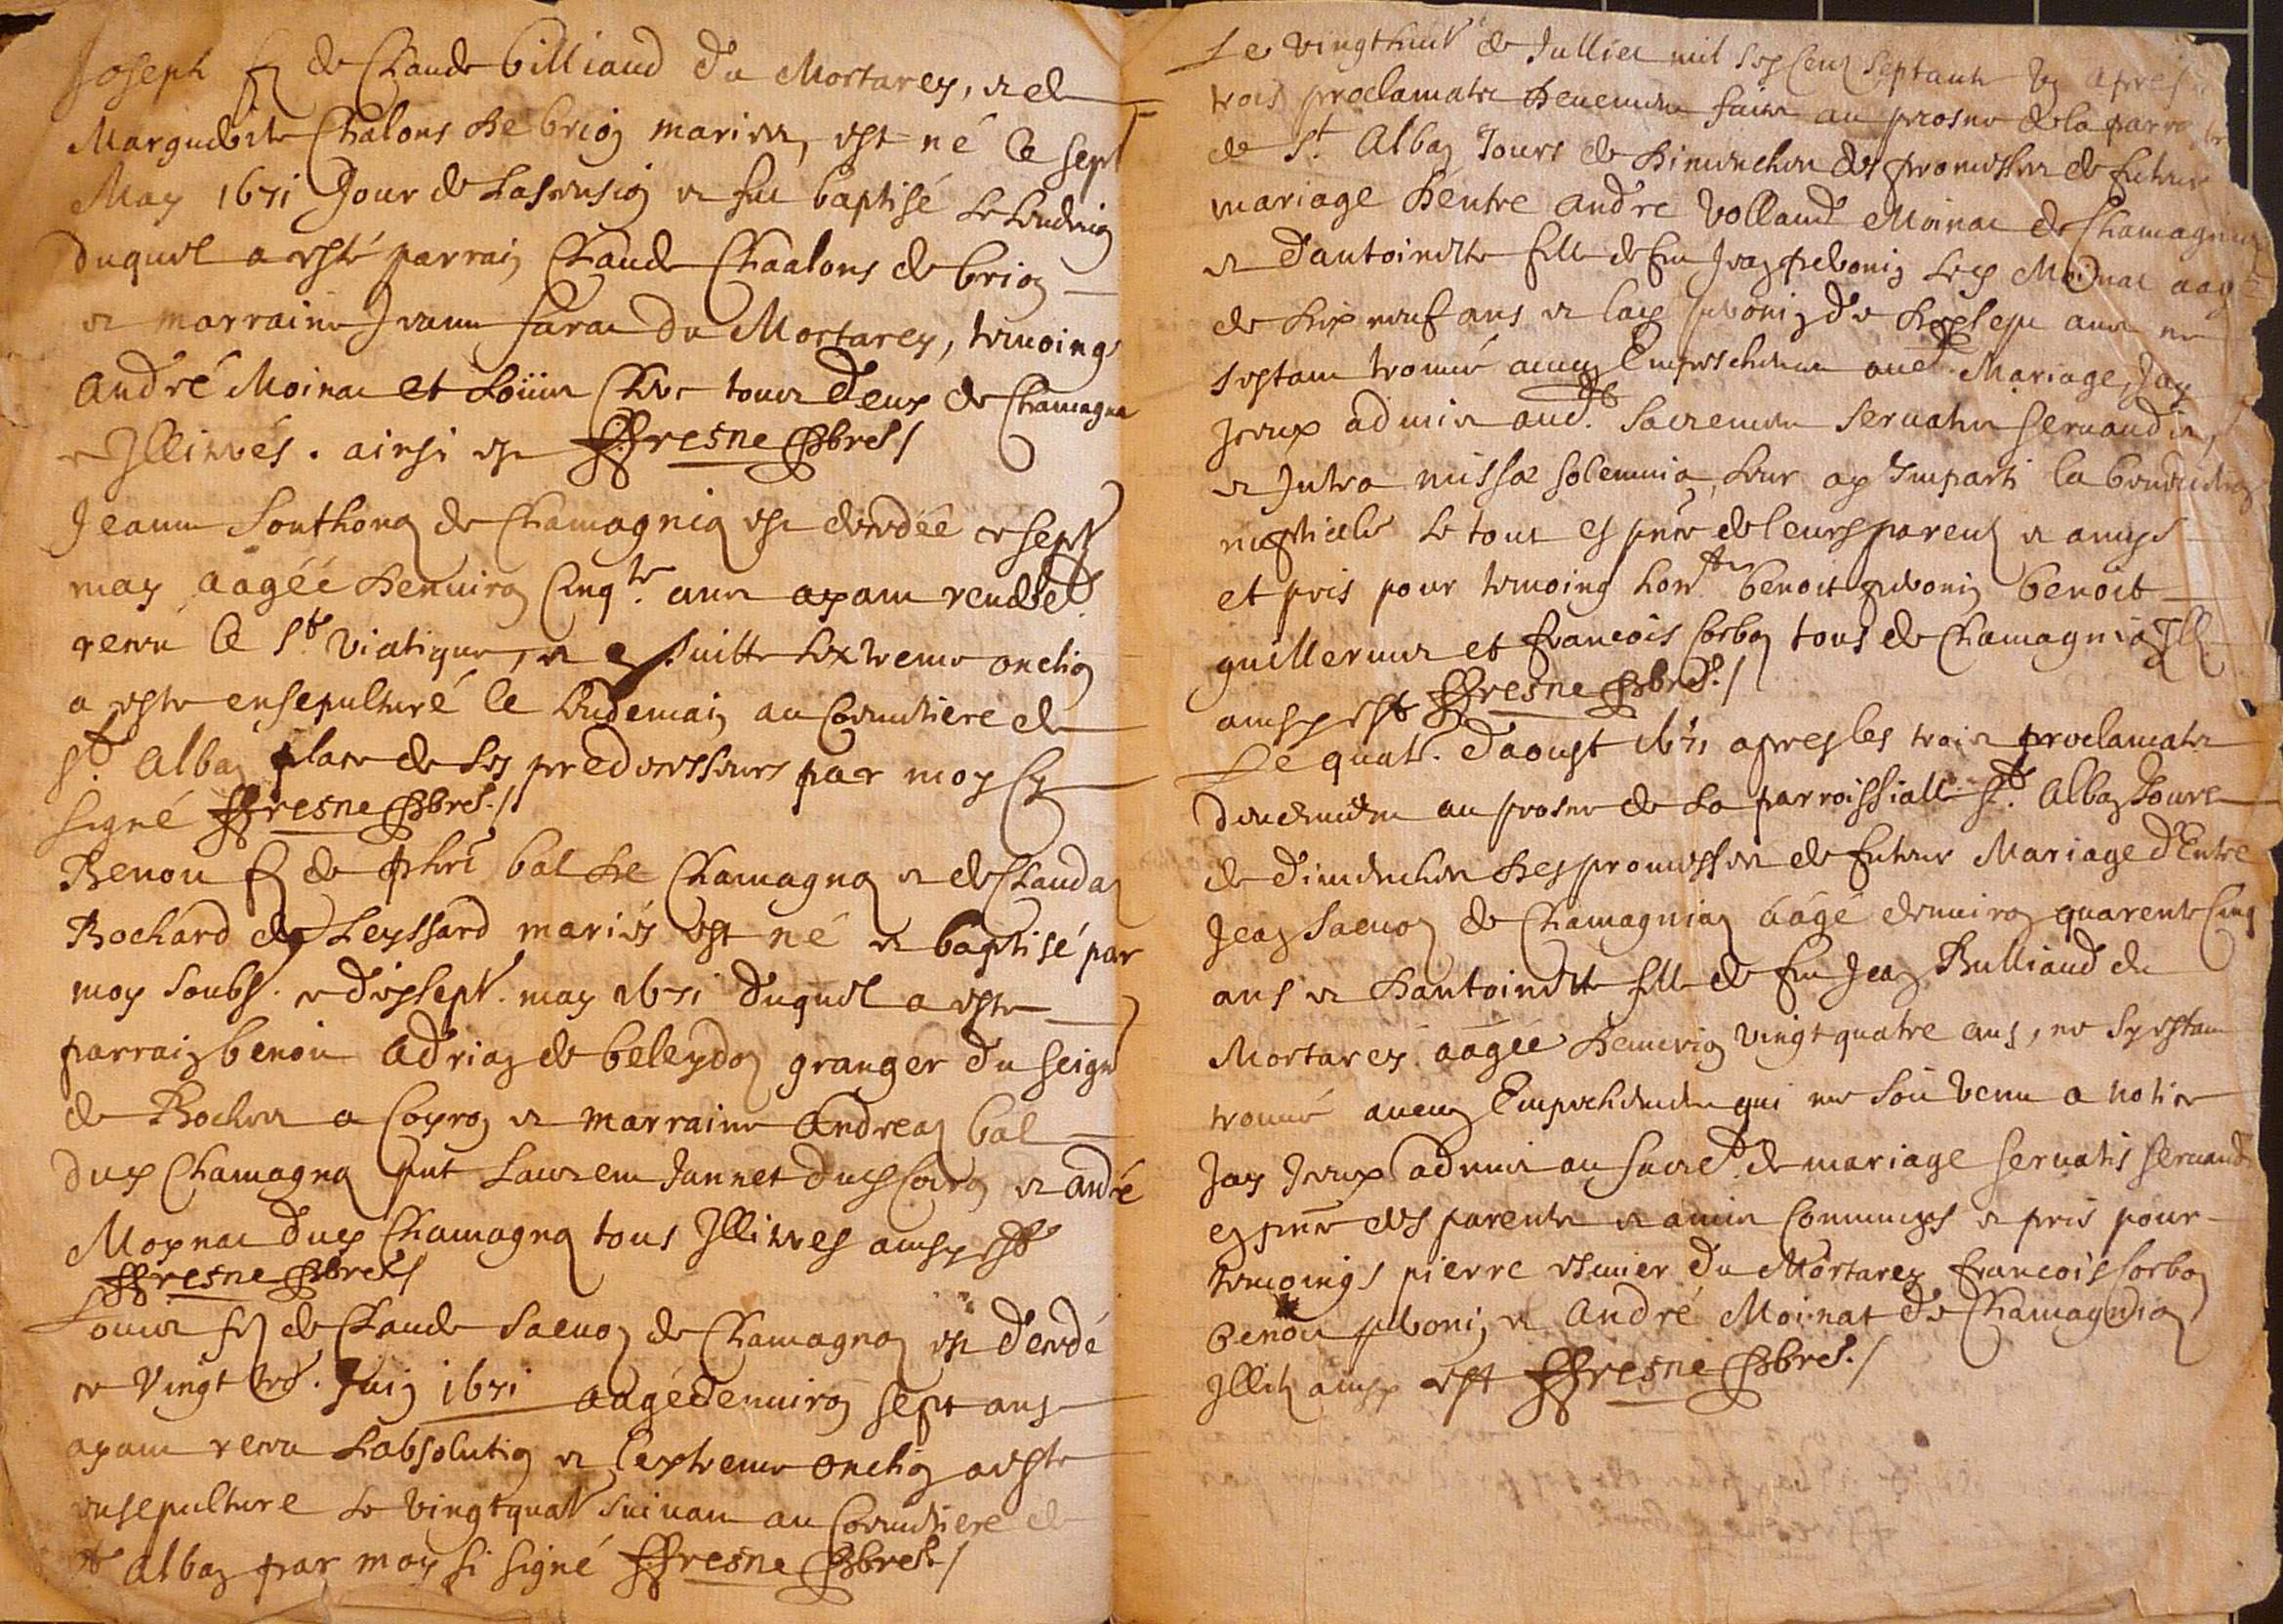 Joseph fz de Claude billiaud du Mortarey, et de
Marguerite Chalons de brioz mariez, est né le sept
May 1671 Jour de Lascension et fut baptisé Le Lendemain
duquel a esté parrain Claude Chaalons de brioz
et marraine Jeanne farae du Mortarey, temoings
André Moinat et Louis Clerc tous deux de Chamagna
et Illitterés. ainsi est ffresne Pbre /
Jeanne Southona de Chamagnia est decedée ce sept
may aagéé denuiron Cinqte ans ayant
receu le St viatique, et en suitte Lextreme onction
a este ensepulturé le Lendemain au Cemetiere de
St. Alban place de ses predecesseurs par moy Cy
signé ffresne Pbre. /
Benoit fz de phri bal de Chamagna et de Clauda
Rochard de Leyssard mariés est né et baptisé par
moy soubs. ce dixsept. may 1671 duquel a este
parrain benoit Adrian de beleydon granger du seigr
de Roches a Coyron et marraine Andrea bal
dud Chamagna put Laurent Jannet dud et andré
Moynat dud Chamagna tous Illitteres ainsy est
ffresne Pbre /
Louis fz de Claude Sauoz de Chamagna est decedé
ce Vingt tr. Juin 1671 aagé denuiron sept ans
ayant receu Labsolution et lextreme onction a este
ensepulturé Le vingtquatr suiuant au Cemetiere de
St Alban par moy si signé ffresne Pbre /
Le vingthuit de Julliet mil six cent septante vn apres
trois proclamates deuement faites au prosne de la parro
de St. Alban Jours de dimenches des promesses de futur
mariage dentre andre Volland Moinat de Chamagnia
et dantoinette fille de feu Jean puboniz Moinat aagé
de dix neuf ans et lad puboniz de dixsept ans ne
sestant trouué aucun Empeschement aud. Mariage, Jay
Jceux admis aud. Sacrement seruatis seruandis,
et Intra missæ solemnia, leur ay Imparti la benediction
nuptiale Le tout en pnce de leurs parents et amys
et pris pour temoing hon. benoit puboniz benoit
guillermin et francois Corboz tous de Chamagnia Ill.
ainsy est ffresne Pbre. /
Le quatr. daoust 1671 apres les trois proclamates
deuement au prosne de La parroissialle St. Alban Jours
de dimenches des promesses de futur Mariage dEntre
Jean Sauoz de Chamagnia áagé denuiron quarente Cinq
ans et dantoinette fille de feu Jean Bulliaud du
Mortarey aagée denuiron vingt quatre ans, ne sy estant
trouué aucun Empechement qui me soit venu a notice
Jay Jceux admis au sacre. de mariage seruatis seruand
en pnce des parents et amis Communs et pris pour
temoings pierre du Mortarey francois Corboz
benoit puboniz et André Moinat de Chamagnia
Illit ainsy est ffresne Pbre. /